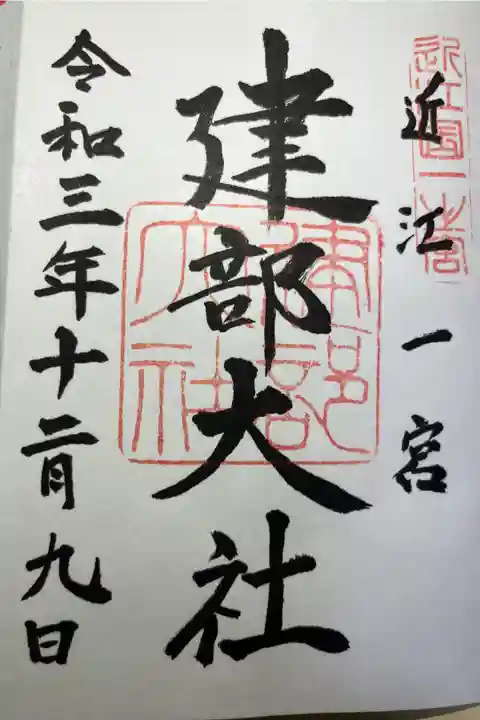 近江國一之宮
近江一宮
建部大社
建部大社
令和三年十二月九日